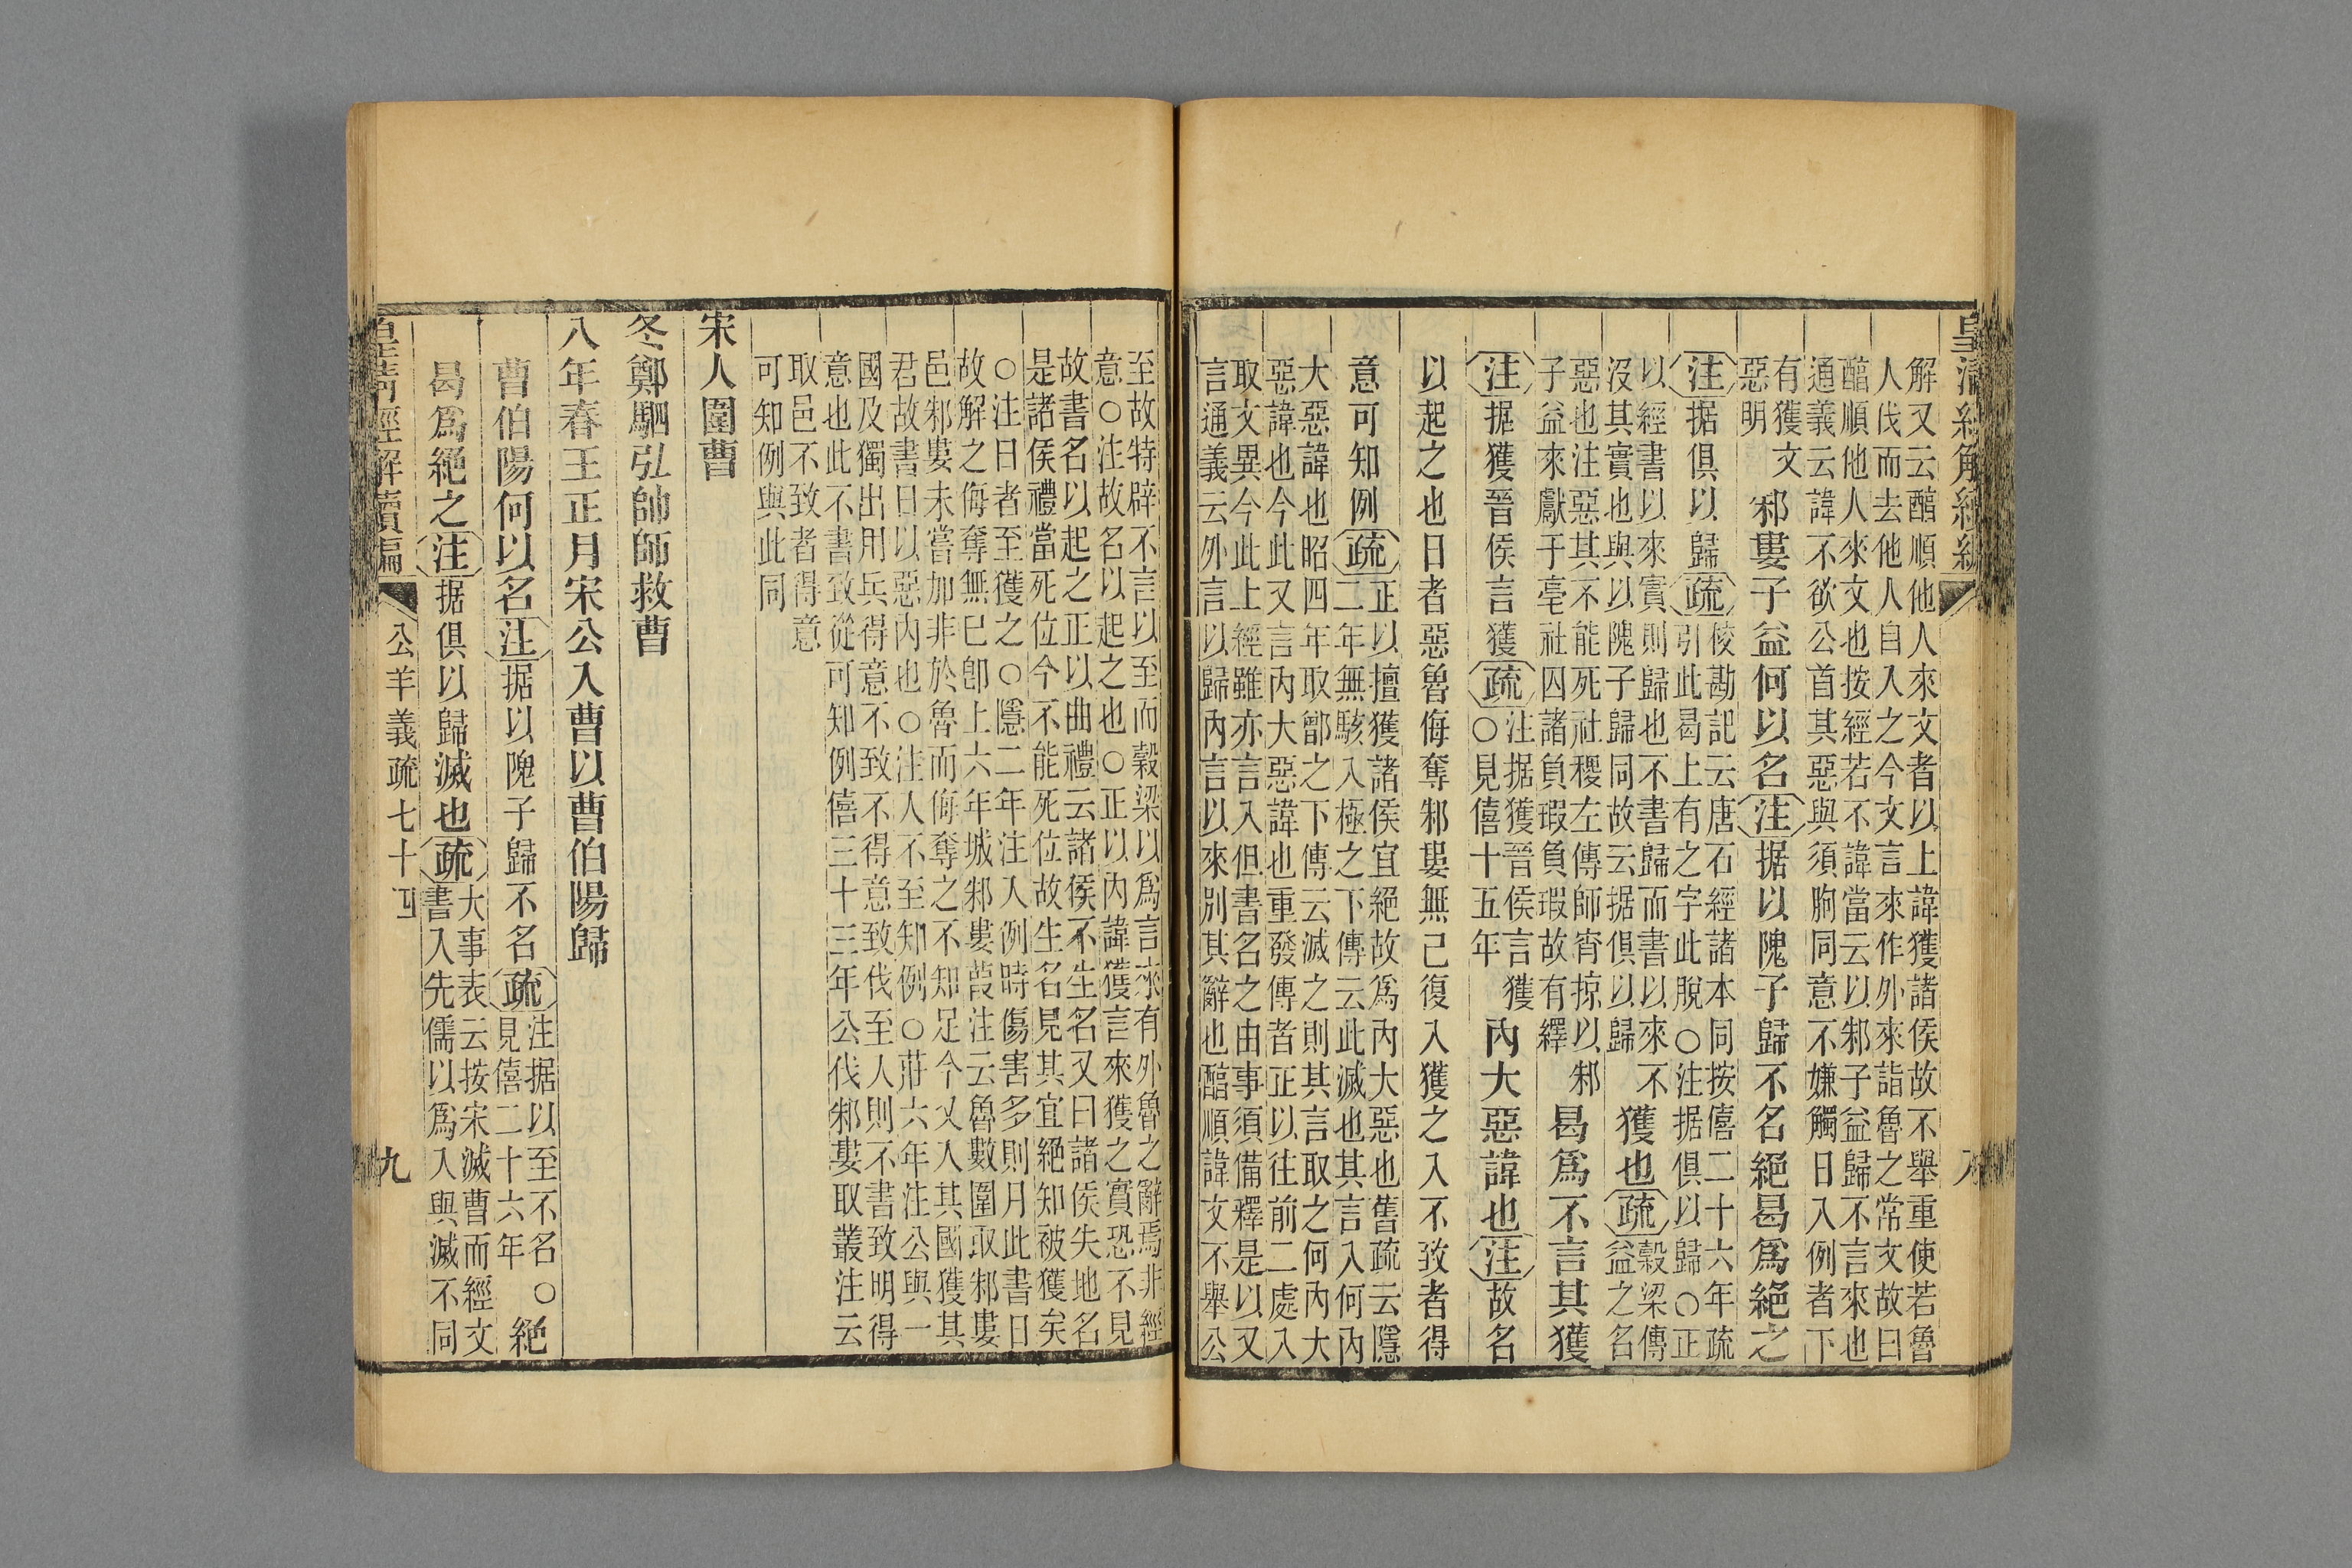 皇清經解續編
八
解又云醕順他人來文者以上諱獲諸侯故不舉重使若魯
人伐而去他人自入之今文言來作外來詣魯之常文故曰
醕順他人來文也按經若不諱當云以邾子益歸不言來也
通義云諱不欲公首其惡與須朐同意不嫌觸日入例者下
有獲文
惡明
邾婁子益何以名注据以隗子歸不名絕曷爲絕之
注据俱以歸疏
校勘記云唐石經諸本同按僖二十六年疏
引此曷上有之字此脫○注据俱以歸○正
以經書以來實則歸也不書歸而書以來不
沒其實也與以隗子歸同故云据俱以歸
獲也疏
穀梁傳
益之名
惡也注惡其不能死社稷左傳師宵掠以邾
子益來獻于亳社囚諸負瑕負瑕故有繹
曷爲不言其獲
注据獲晉侯言獲疏
注据獲晉侯言獲
○見僖十五年
內大惡諱也注故名
以起之也日者惡魯侮奪邾婁無已復入獲之入不致者得
意可知例疏
正以擅獲諸侯宜絕故爲內大惡也舊疏云隱
二年無駭入極之下傳云此滅也其言入何內
大惡諱也昭四年取鄫之下傳云滅之則其言取之何內大
惡諱也今此又言內大惡諱也重發傳者正以往前二處入
取文異今此上經雖亦言入但書名之由事須備釋是以又
言通義云外言以歸內言以來別其辭也醕順諱文不舉公
至故特辟不言以至而穀梁以爲言來有外魯之辭焉非經
意○注故名以起之也○正以內諱獲言來獲之實恐不見
故書名以起之正以曲禮云諸侯不生名又曰諸侯失地名
是諸侯禮當死位今不能死位故生名見其宜絕知被獲矣
○注日者至獲之○隱二年注入例時傷害多則月此書日
故解之侮奪無已卽上六年城邾婁葭注云魯數圍取邾婁
邑邾婁未嘗加非於魯而侮奪之不知足今又入其國獲其
君故書日以惡內也○注人不至知例○莊六年注公與一
國及獨出用兵得意不致不得意致伐至人則不書致明得
意也此不書致從可知例僖三十三年公伐邾婁取叢注云
取邑不致者得意
可知例與此同
宋人圍曹
冬鄭駟弘帥師救曹
八年春王正月宋公入曹以曹伯陽歸
曹伯陽何以名注据以隗子歸不名疏
注据以至不名○
見僖二十六年
絕
曷爲絕之注据俱以歸滅也疏
大事表云按宋滅曹而經文
書入先儒以爲入與滅不同
皇清經解續編
公羊義疏七十四
九